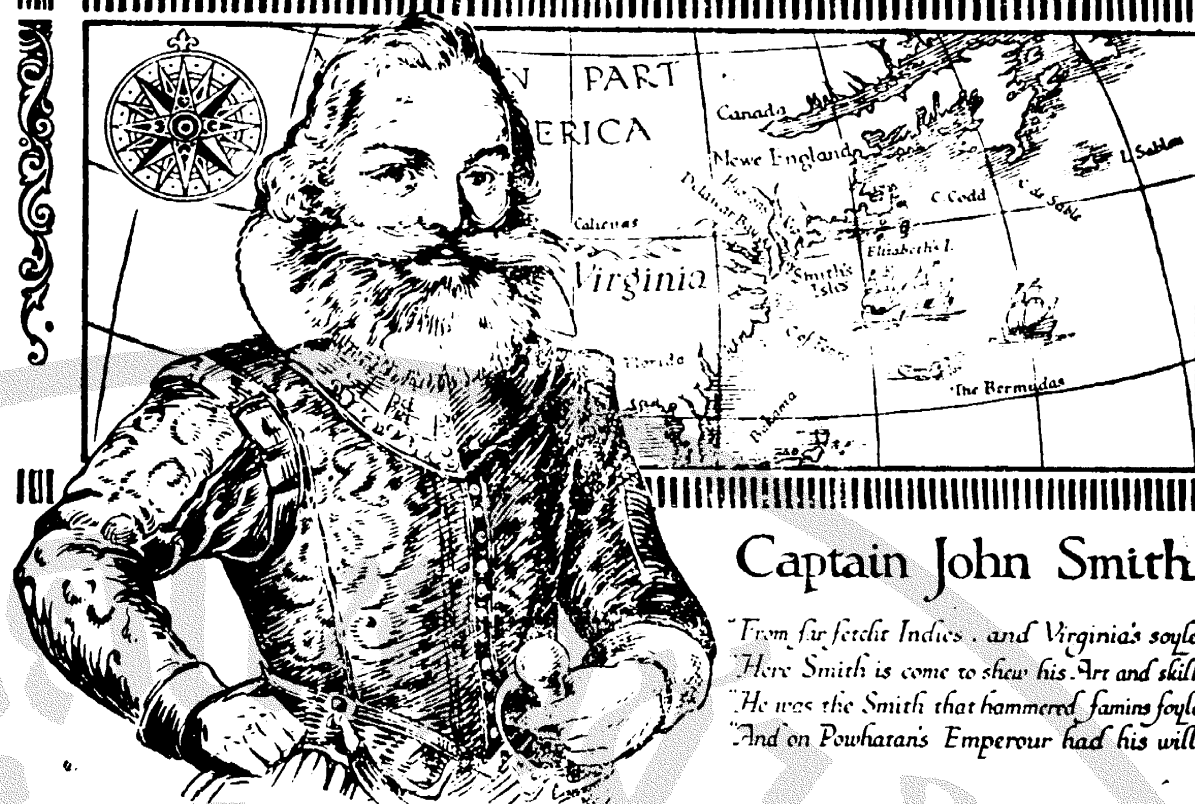 N PART
ERICA
Canada
Newe England
I. Sables
C. Codd
C. de Sable
Calicuas
Elizabeth's I.
Virginia
Smith's
Isles
Florida
The Bermudas
Bahama
Captain John Smith
"From far fetcht Indies, and Virginia's soyle
"Here Smith is come to shew his Art and skill
"He was the Smith that hammered famins foyle
"And on Powhatan's Emperour had his will